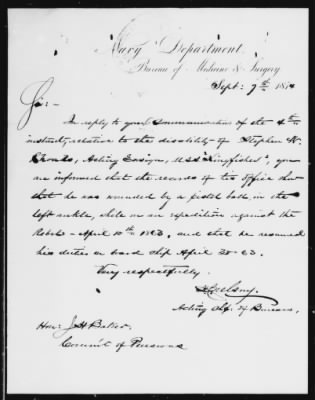 Navy Department,
Bureau of Medicine & Surgery
Sept: 7th 1874
Sir:-
In reply to your communication of the 4th
instant, relative to the disability of Stephen W.
Acting Ensign, U.S.S. "Kingfisher", you
are informed that the records of this Office show
that he was wounded by a pistol ball in the
left ankle, while on an expedition against the
Rebels - April 10th 1863, and that he resumed
his duties on board ship April 30-63.
Very respectfully,
Acting Chf. of Bureau,
Hon: J H Baker
Commis't of Pensions